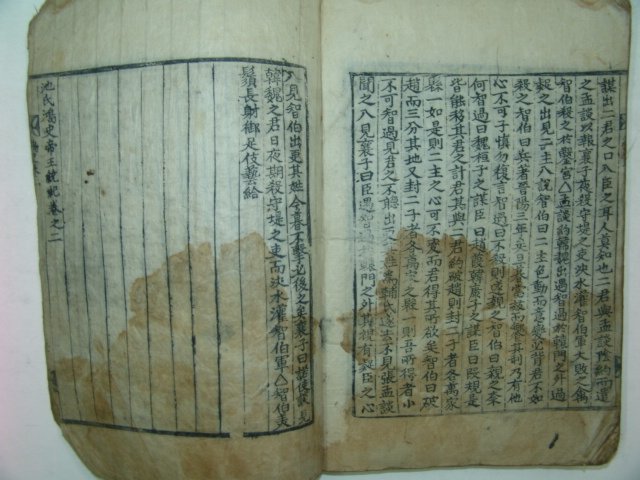 謀出二君之口入臣之耳人莫知也二君與孟談陰約而遣
之孟談以報襄子夜殺守堤之吏決水灌智伯軍大敗之禽
智伯殺之於鑿臺△孟談約韓魏出遇智過於轅門之外過
出見二主入說智伯曰二主色動而意變必背君不如
殺之智伯曰兵著晉陽三年矣旦暮當拔而饗其利乃有他
心不可子慎勿復言智過曰不殺則遂親之智伯曰親之奈
何智過曰魏桓子之謀臣曰趙葭韓康子之謀臣曰段規是
皆能移其君之計君其與二君約破趙則封二子者各萬家
縣一如是則二主之心可不変而君得其所欲矣智伯曰破
趙而三分其地又封二子者各萬家之縣一則吾所得者小
不可智過見君之不聽出而易姓爲輔氏遂去不見張孟談
聞之入見襄子曰臣遇智過轅門之外其視有疑臣之心
入見智伯出更其姓今暮不擊必後之矣襄子曰諾使談見
韓魏之君曰夜期殺守堤之吏而決水灌智伯軍△智伯美
鬚長射御足伎藝給
池氏鴻史帝王統紀卷之二